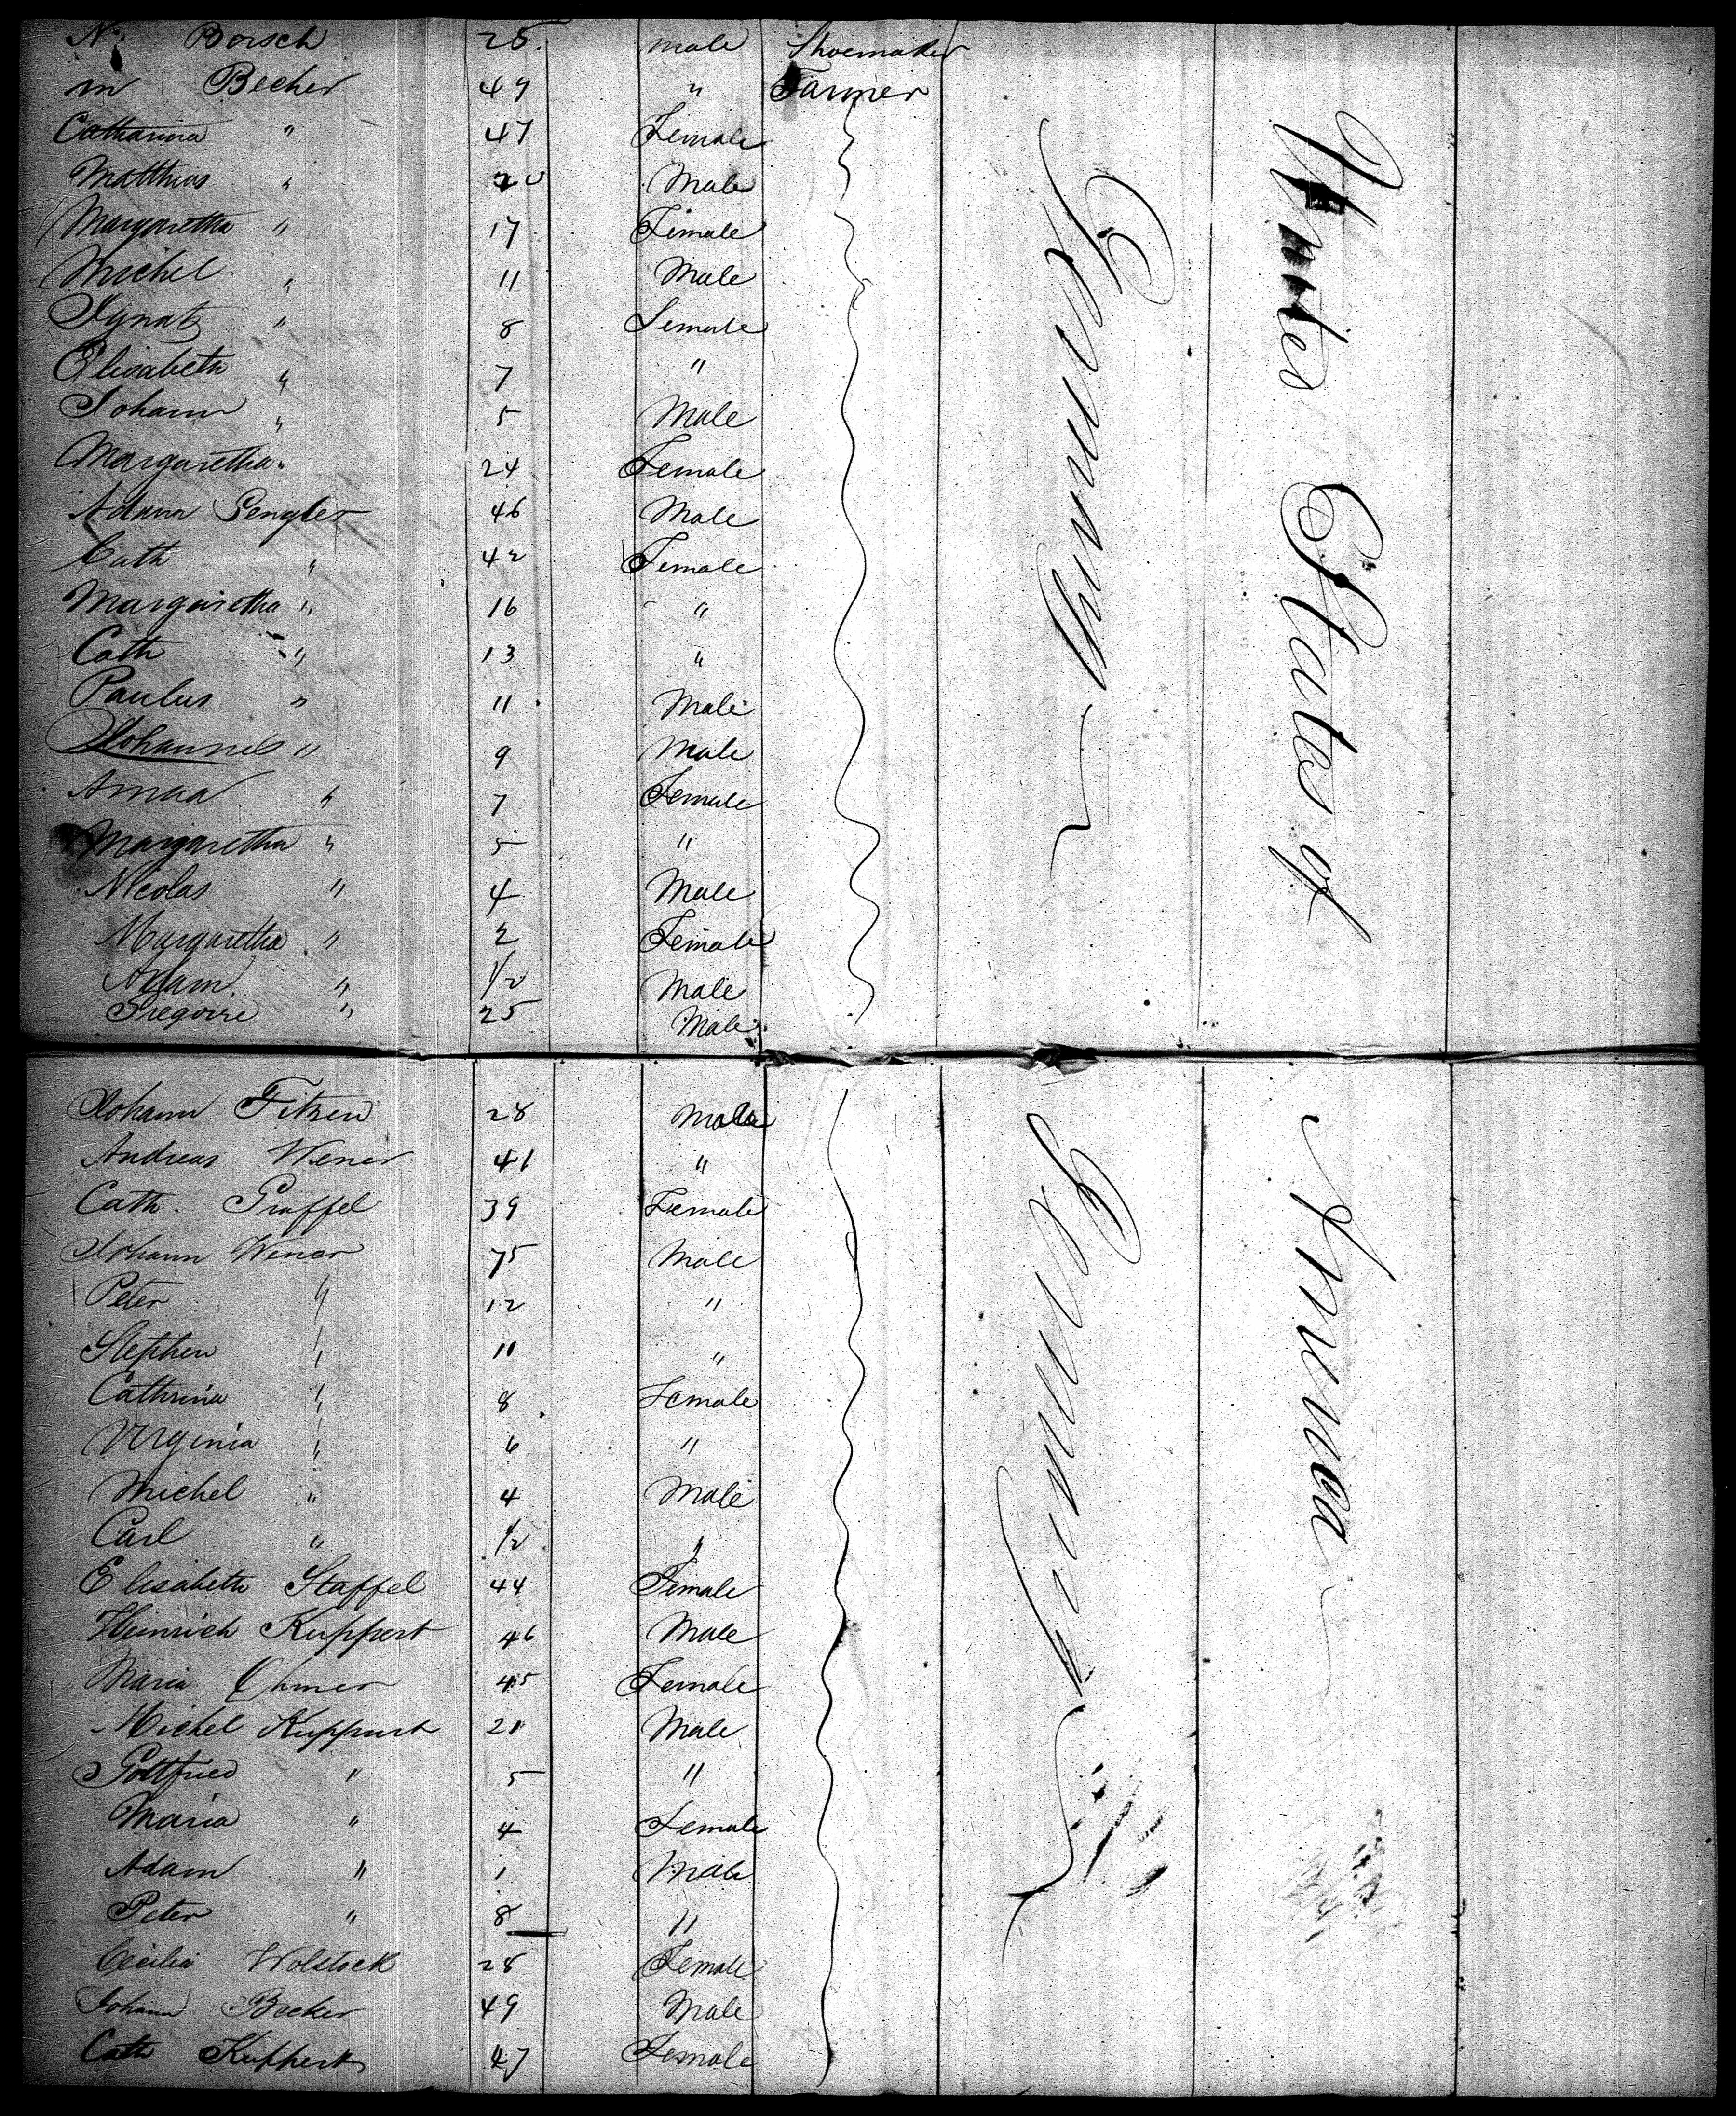 N. Borsch 25. male Shoemaker
M Becher 49 " Farmer
Catharina " 47 Female
Matthias " 20 Male
Margaretha " 17 Female
Michel " 11 Male
Ignatz " 8 Female
Elisabeth " 7 "
Johann " 5 Male
Margaretha " 24 Female
Adam Gengler 46 Male
Cath " 42 Female
Margaretha " 16 "
Cath " 13 "
Paulus " 11 Male
Johannes " 9 Male
Anna " 7 Female
Margaretha " 5 "
Nicolas " 4 Male
Margaretha " 2 Female
Adam " 1/2 Male
Gregoire " 25 Male
Germany
United States of
Johann Fitzen 28 Male
Andreas Wener 41 "
Cath. 39 Female
Johann Wener 75 Male
Peter " 12 "
Stephen " 11 "
Cathrina " 8 Female
Virginia " 6 "
Michel " 4 Male
Carl " 1/2 "
Elisabeth Staffel 44 Female
Heinrich Kuppert 46 Male
Maria 45 Female
Michel Kuppert 21 Male
Gottfried " 5 "
Maria " 4 Female
Adam " 1 Male
Peter " 8 "
Cecilia Wolstock 28 Female
Johann Becker 49 Male
Cath Kuppert 47 Female
Germany
America